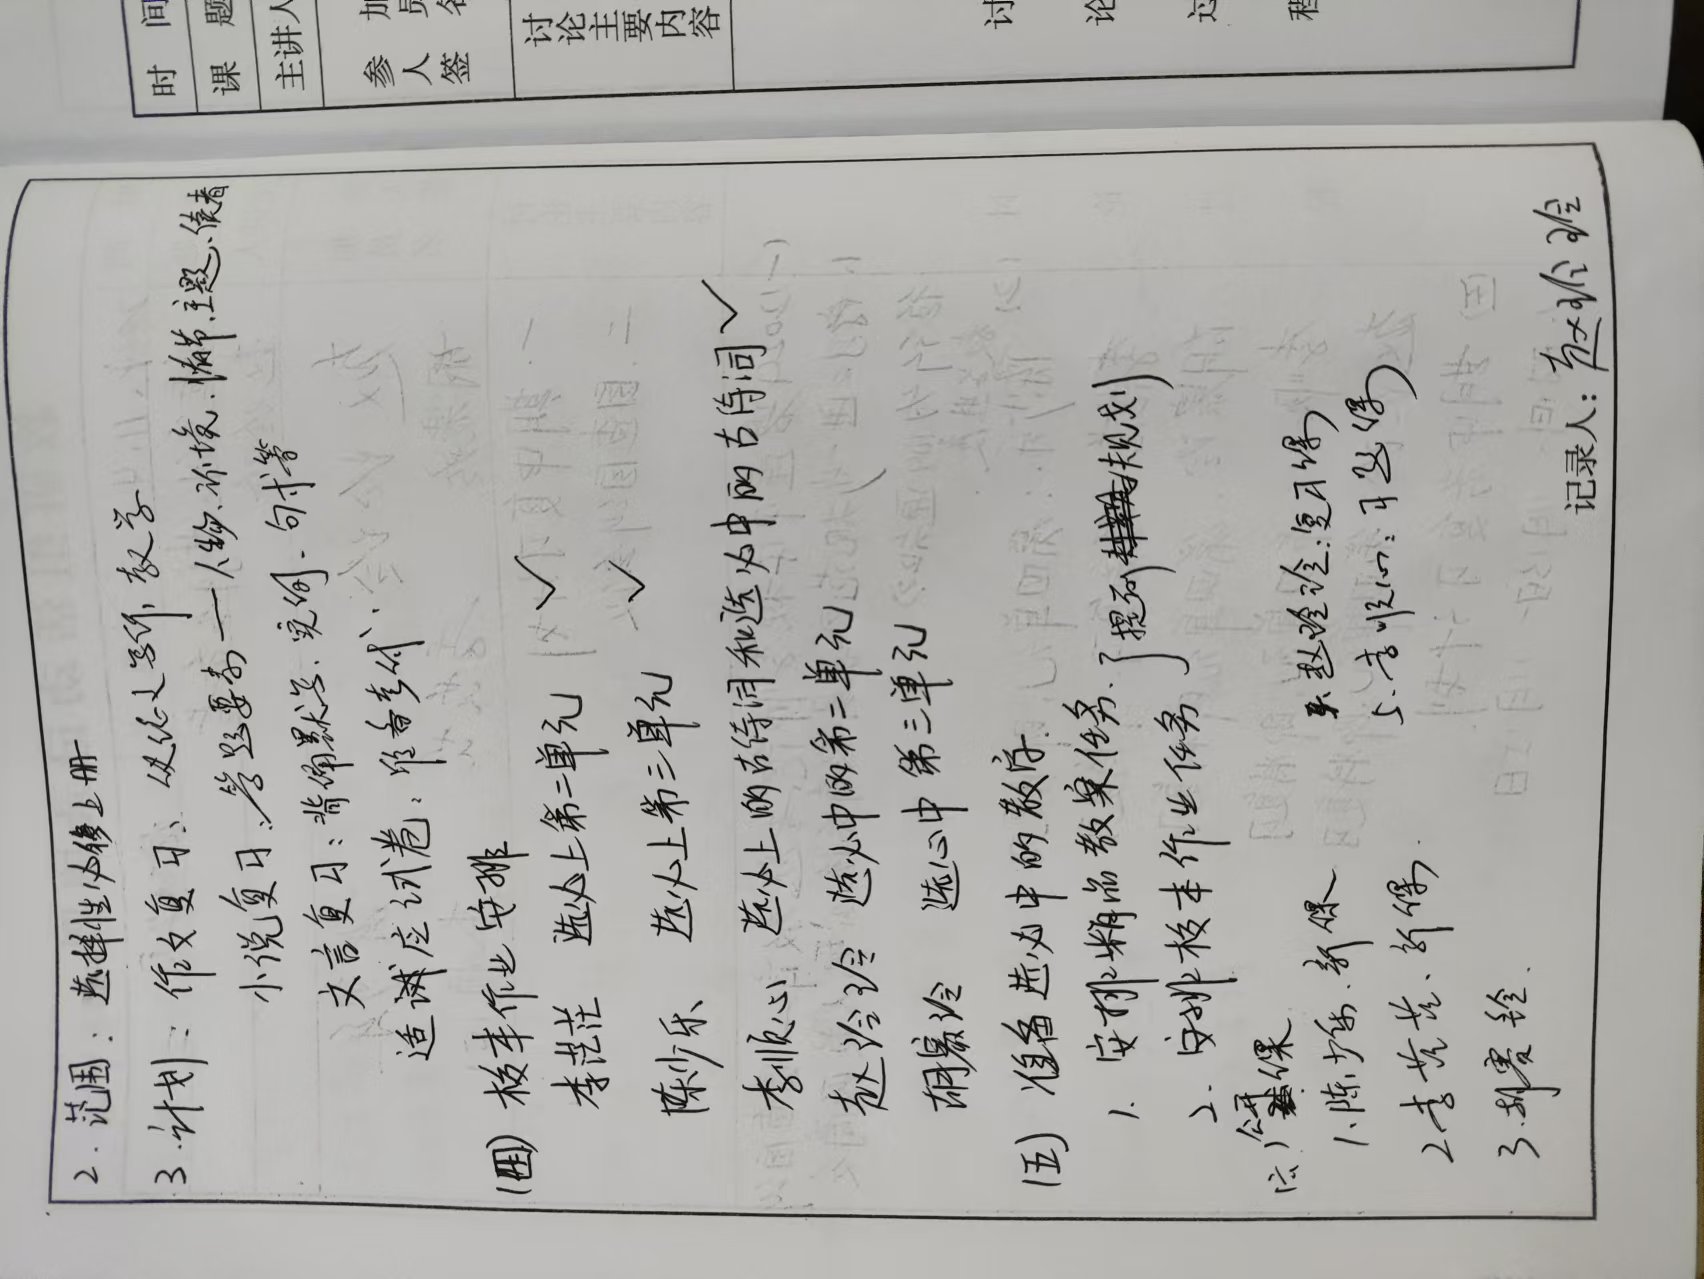 时 间
课 题
主讲人
参 加
人 员
签 名
讨论主要内容
讨 论 过 程
2. 范围：选择性必修上册
3. 计划：作文复习：以任务写作教学
小说复习：答题要素——人物、环境、情节、主题、读者
文言复习：背诵默写、实词、句式等
适诚应试卷：准备考试
(四) 校本作业安排
李茫茫 选必上第二单元 ✓
陈少乐 选必上第三单元 ✓
李顺心 选必上的古诗词和选必中的古诗词 ✓
赵玲玲 选必中的第二单元
胡赛玲 选必中第三单元
(五) 准备选必中的教学
1. 安排精品教案任务
2. 安排校本作业任务
(提到规划)
(六) 公开课
1. 陈少乐、新课
2. 李茫茫、新课
3. 胡赛玲
4. 赵玲玲：复习课
5. 李顺心：习题课
记录人：赵玲玲